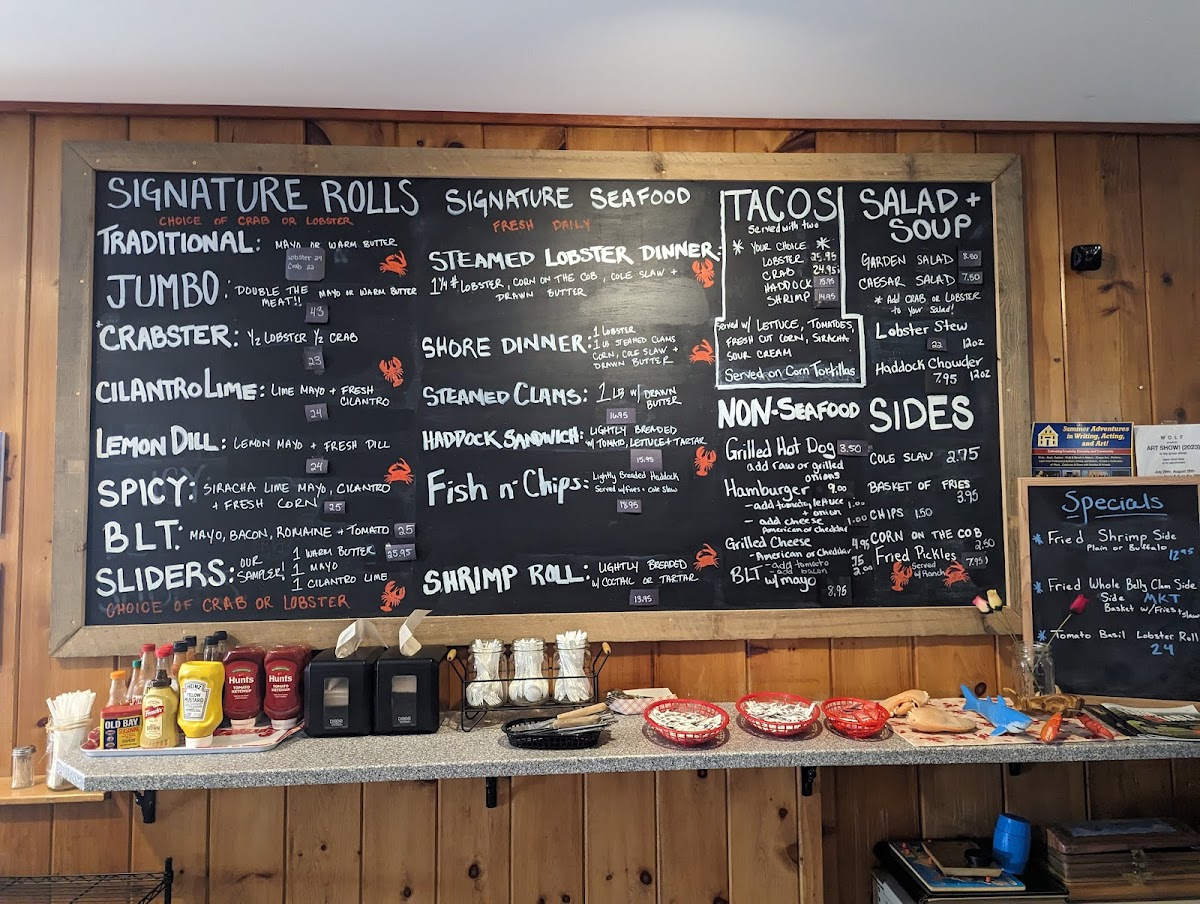 SIGNATURE ROLLS
CHOICE OF CRAB OR LOBSTER
TRADITIONAL: MAYO OR WARM BUTTER
Lobster 24
Crab 22
JUMBO: DOUBLE THE MEAT!! MAYO OR WARM BUTTER
43
*CRABSTER: 1/2 LOBSTER 1/2 CRAB
23
CILANTRO LIME: LIME MAYO + FRESH
CILANTRO
24
LEMON DILL: LEMON MAYO + FRESH DILL
24
SPICY: SIRACHA LIME MAYO, CILANTRO
+ FRESH CORN 25
BLT: MAYO, BACON, ROMAINE + TOMATO 25
SLIDERS: OUR SAMPLER! 1 WARM BUTTER 25.95
1 MAYO
1 CILANTRO LIME
CHOICE OF CRAB OR LOBSTER
SIGNATURE SEAFOOD
FRESH DAILY
STEAMED LOBSTER DINNER:
1 1/4 # LOBSTER, CORN ON THE COB, COLE SLAW +
DRAWN BUTTER
SHORE DINNER: 1 LOBSTER
1 LB STEAMED CLAMS
CORN, COLE SLAW +
DRAWN BUTTER
STEAMED CLAMS: 1 LB W/ DRAWN
BUTTER
16.95
HADDOCK SANDWICH: LIGHTLY BREADED
W/ TOMATO, LETTUCE + TARTAR
15.95
Fish n' Chips: Lightly Breaded Haddock
Served w/ Fries + Cole Slaw
18.95
SHRIMP ROLL: LIGHTLY BREADED
W/ COCTAIL OR TARTAR
13.95
TACOS
Served with two
* YOUR CHOICE *
LOBSTER 25.95
CRAB 24.95
HADDOCK 15.95
SHRIMP 14.95
Served w/ LETTUCE, TOMATOES,
FRESH CUT CORN, SIRACHA
SOUR CREAM
Served on Corn Tortillas
NON-SEAFOOD
Grilled Hot Dog 3.50
add raw or grilled
onions
Hamburger 9.00
- add tomato, lettuce 1.00
+ onion
- add cheese 1.00
American or cheddar
Grilled Cheese 4.95
- American or Cheddar
- add tomato .75
- add bacon 2.00
BLT w/ mayo 8.95
SALAD +
SOUP
GARDEN SALAD 8.50
CAESAR SALAD 7.50
* Add CRAB or LOBSTER
to your Salad!
Lobster Stew
22 12oz
Haddock Chowder
7.95 12oz
SIDES
COLE SLAW 2.75
BASKET OF FRIES
3.95
CHIPS 1.50
CORN ON THE COB
2.50
Fried Pickles 7.95
Served
w/ Ranch
Summer Adventures
in Writing, Acting,
and Art!
WOLF
ART SHOW! (2023)
Specials
* Fried Shrimp Side
Plain or Buffalo
12.95
* Fried Whole Belly Clam Side
Side MKT
Basket w/ Fries + slaw
* Tomato Basil Lobster Roll
24
OLD BAY
SEASONING
HEINZ
YELLOW
MUSTARD
Hunt's
TOMATO
KETCHUP
Hunt's
TOMATO
KETCHUP